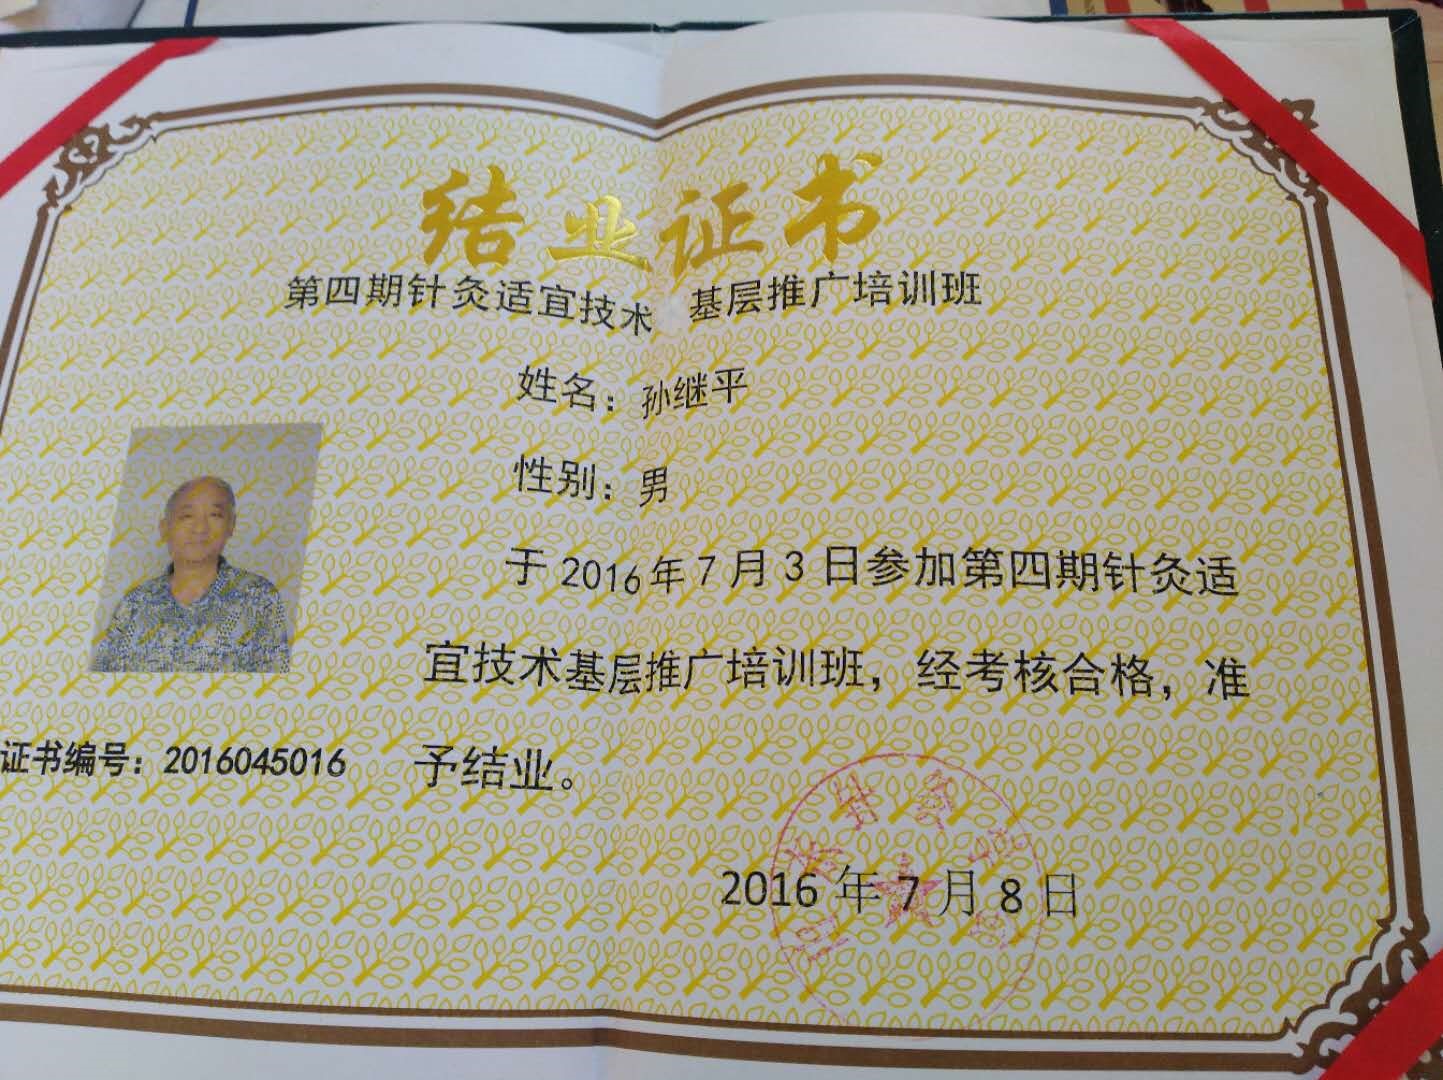 结业证书
第四期针灸适宜技术 基层推广培训班
姓名：孙继平
性别：男
于2016年7月3日参加第四期针灸适
宜技术基层推广培训班，经考核合格，准
予结业。
证书编号：2016045016
2016年7月8日